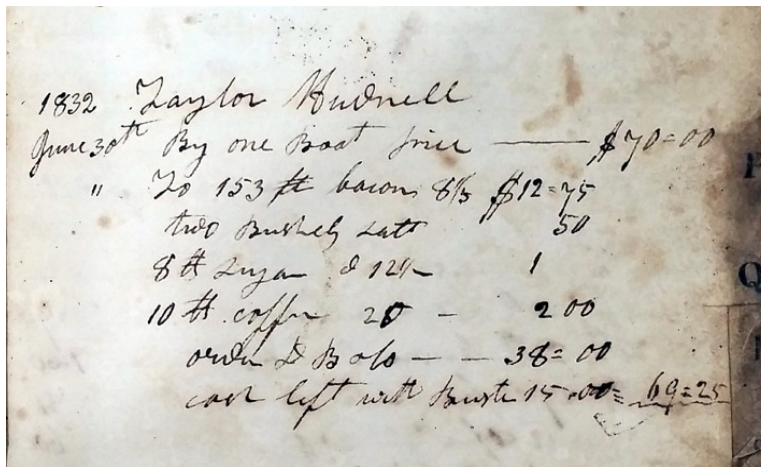 1832 Taylor Hudnell
June 30th By one Boat price — $70=00
" To 153 ft bacon 8⅓ $12=75
two Bushels Salt 50
8 ft Sugar @ 12½ 1
10 ft coffee 20 — 2 00
order D B olo — — 38=00
cash left with 15.00= 69=25
P
Q